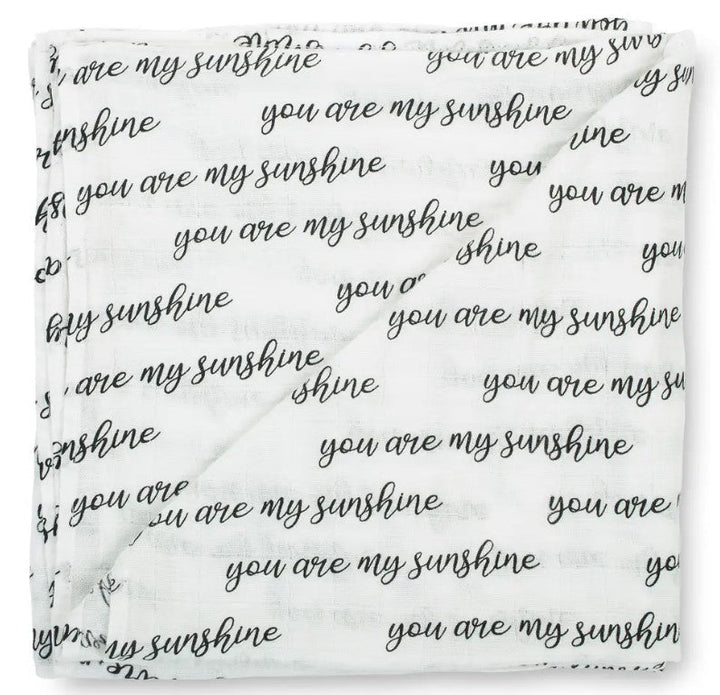 are my sunshine you are my sun
my su
nshine you are my sunshine
ine
you are my sunshine you
you are m
you are my sunshine
shine you
my sunshine you a
you are my sunshine
are my sunshine
shine you are my su
nshine you are my sunshine
you are
ou are my sunshine you are
you are my sunshine yo
my sunshine you are my sunshin